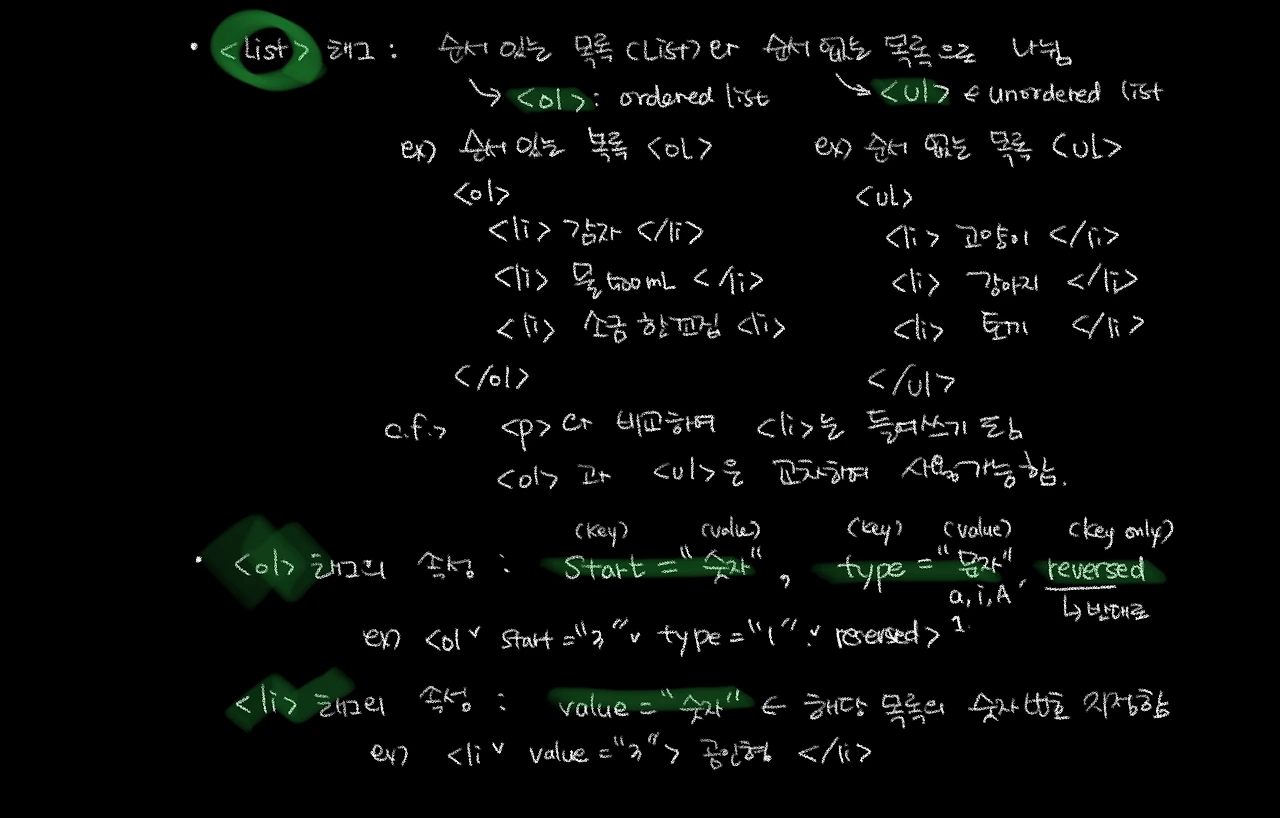 • <list> 태그 : 순서 있는 목록 (List)와 순서 없는 목록으로 나뉨
↳ <ol> : ordered list ↳ <ul> ← unordered list
ex) 순서 있는 목록 <ol> ex) 순서 없는 목록 <ul>
<ol> <ul>
<li> 감자 </li> <li> 고양이 </li>
<li> 물 500mL </li> <li> 강아지 </li>
<li> 소금 한꼬집 <li> <li> 토끼 </li>
</ol> </ul>
c.f.> <p>와 비교하여 <li>는 들여쓰기 됨
<ol>과 <ul>은 교차하여 사용가능함.
(key) (value) (key) (value) (key only)
• <ol> 태그의 속성 : start = "숫자", type = "문자", reversed
a, i, A ↳ 반대로
ex) <ol ˅ start ="3" ˅ type ="1" ˅ reversed> 1.
<li> 태그의 속성 : value = "숫자" ← 해당 목록의 숫자 번호 지정함
ex) <li ˅ value ="3"> 곰인형 </li>